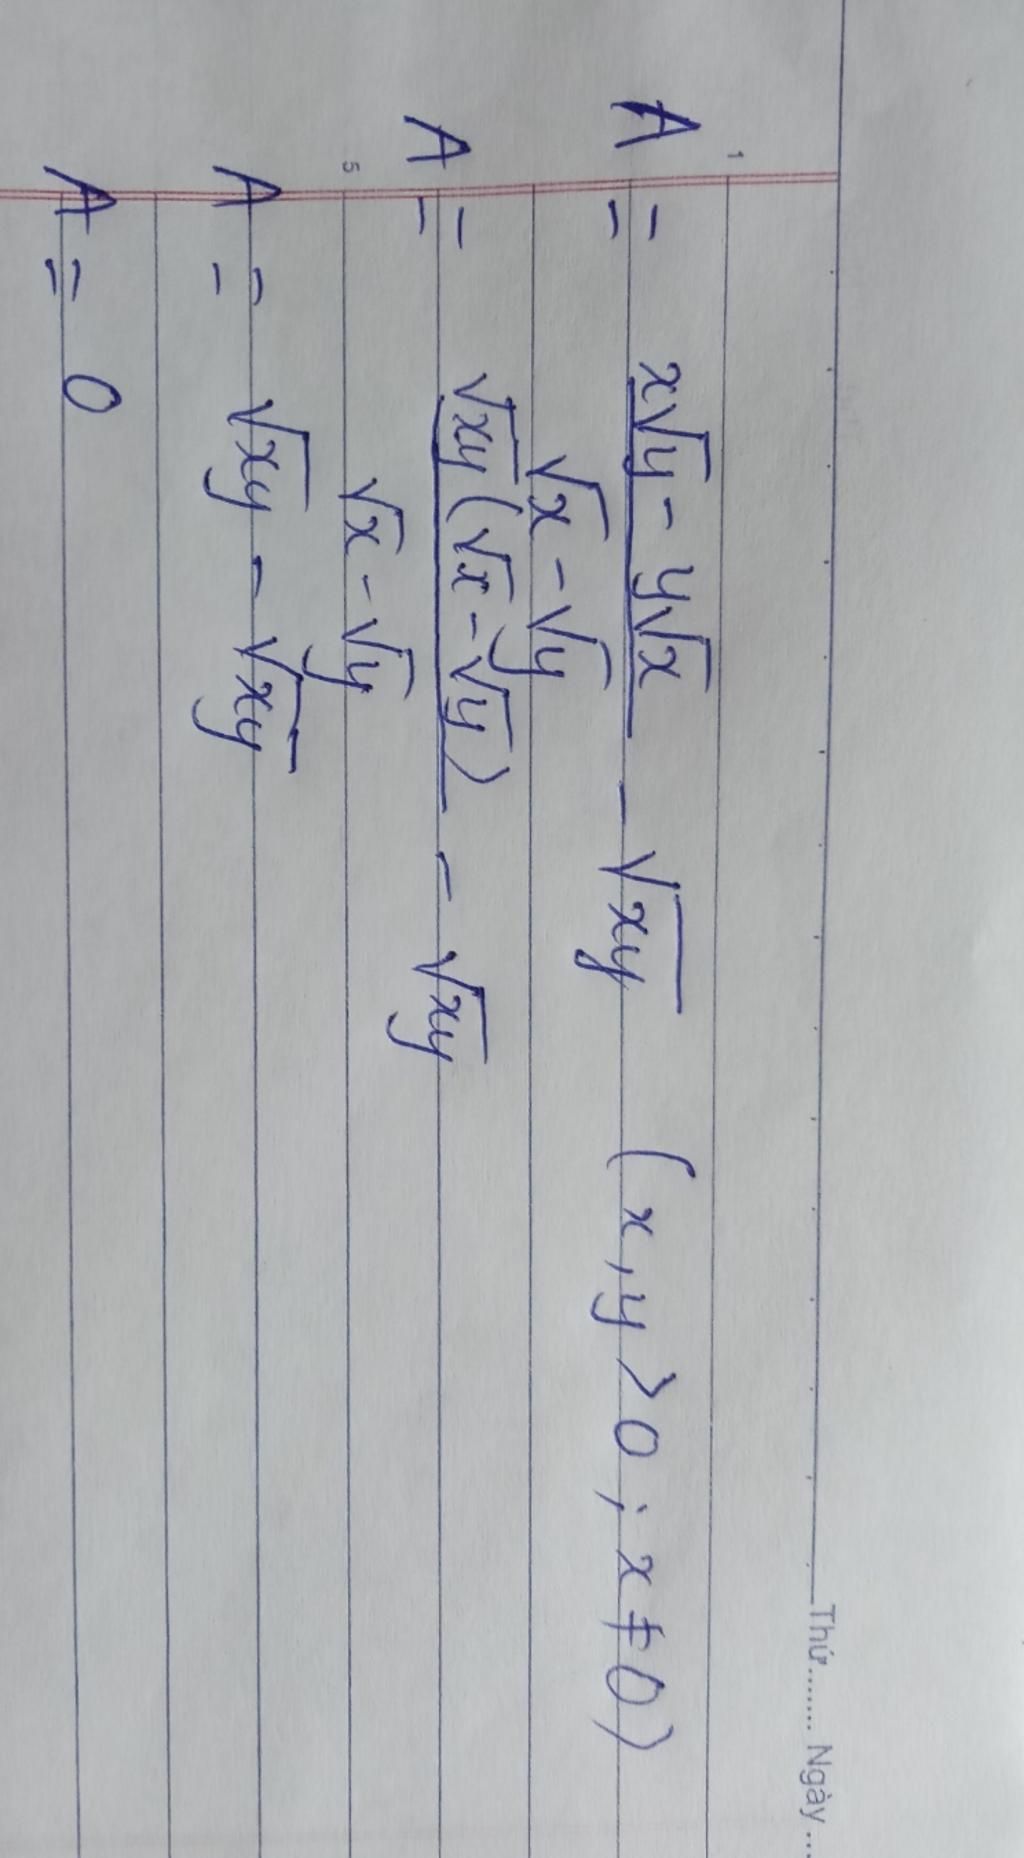 Thứ....... Ngày ...
1
A = \frac{x\sqrt{y} - y\sqrt{x}}{\sqrt{x} - \sqrt{y}} - \sqrt{xy} (x, y > 0 ; x ≠ 0)
A = \frac{\sqrt{xy}(\sqrt{x} - \sqrt{y})}{\sqrt{x} - \sqrt{y}} - \sqrt{xy}
5
A = \sqrt{xy} - \sqrt{xy}
A = 0